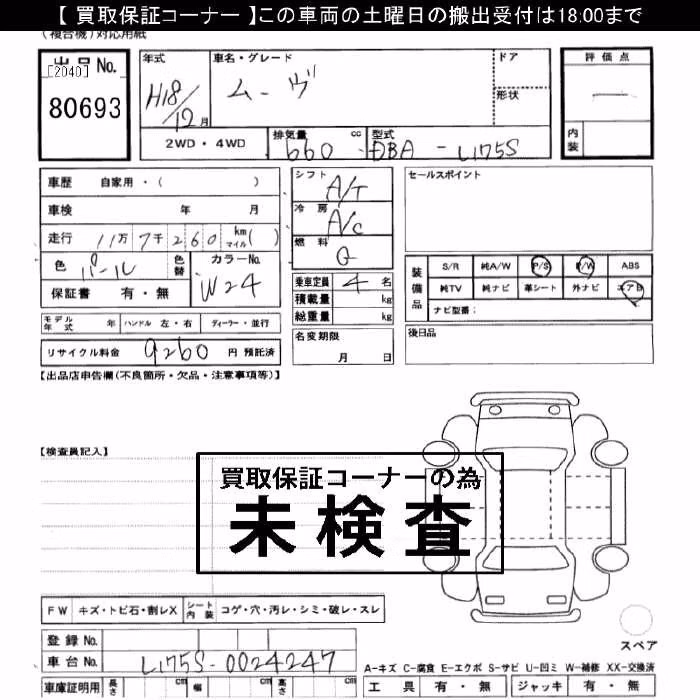 【 買取保証コーナー 】この車両の土曜日の搬出受付は18:00まで
(複合機)対応用紙
出品 No.
[2040]
80693
年式
H18/12月
車名・グレード
ムーヴ
ドア
形状
評価点
内装
2WD・4WD
排気量 660 cc
型式 DBA - L175S
車歴 自家用・( )
車検 年 月
走行 11万7千260 km マイル( )
色 パール
色替
カラーNo. W24
保証書 有・無
シフト A/T
冷房 A/C
燃料 G
乗車定員 4 名
積載量 kg
総重量 kg
セールスポイント
装備品
S/R 純A/W P/S P/W ABS
純TV 純ナビ 革シート 外ナビ エアB
ナビ型番：
モデル年式 年 ハンドル 左・右 ディーラー・並行
リサイクル料金 9260 円 預託済
名変期限 月 日
後日品
【出品店申告欄(不良箇所・欠品・注意事項等)】
【検査員記入】
買取保証コーナーの為
未検査
FW キズ・トビ石・割レX シート内装 コゲ・穴・汚レ・シミ・破レ・スレ
登録 No.
車台 No. L175S-0024247
スペア
車庫証明用 長さ cm 幅 cm 高さ cm
A-キズ C-腐食 E-エクボ S-サビ U-凹ミ W-補修 XX-交換済
工具 有・無 ジャッキ 有・無